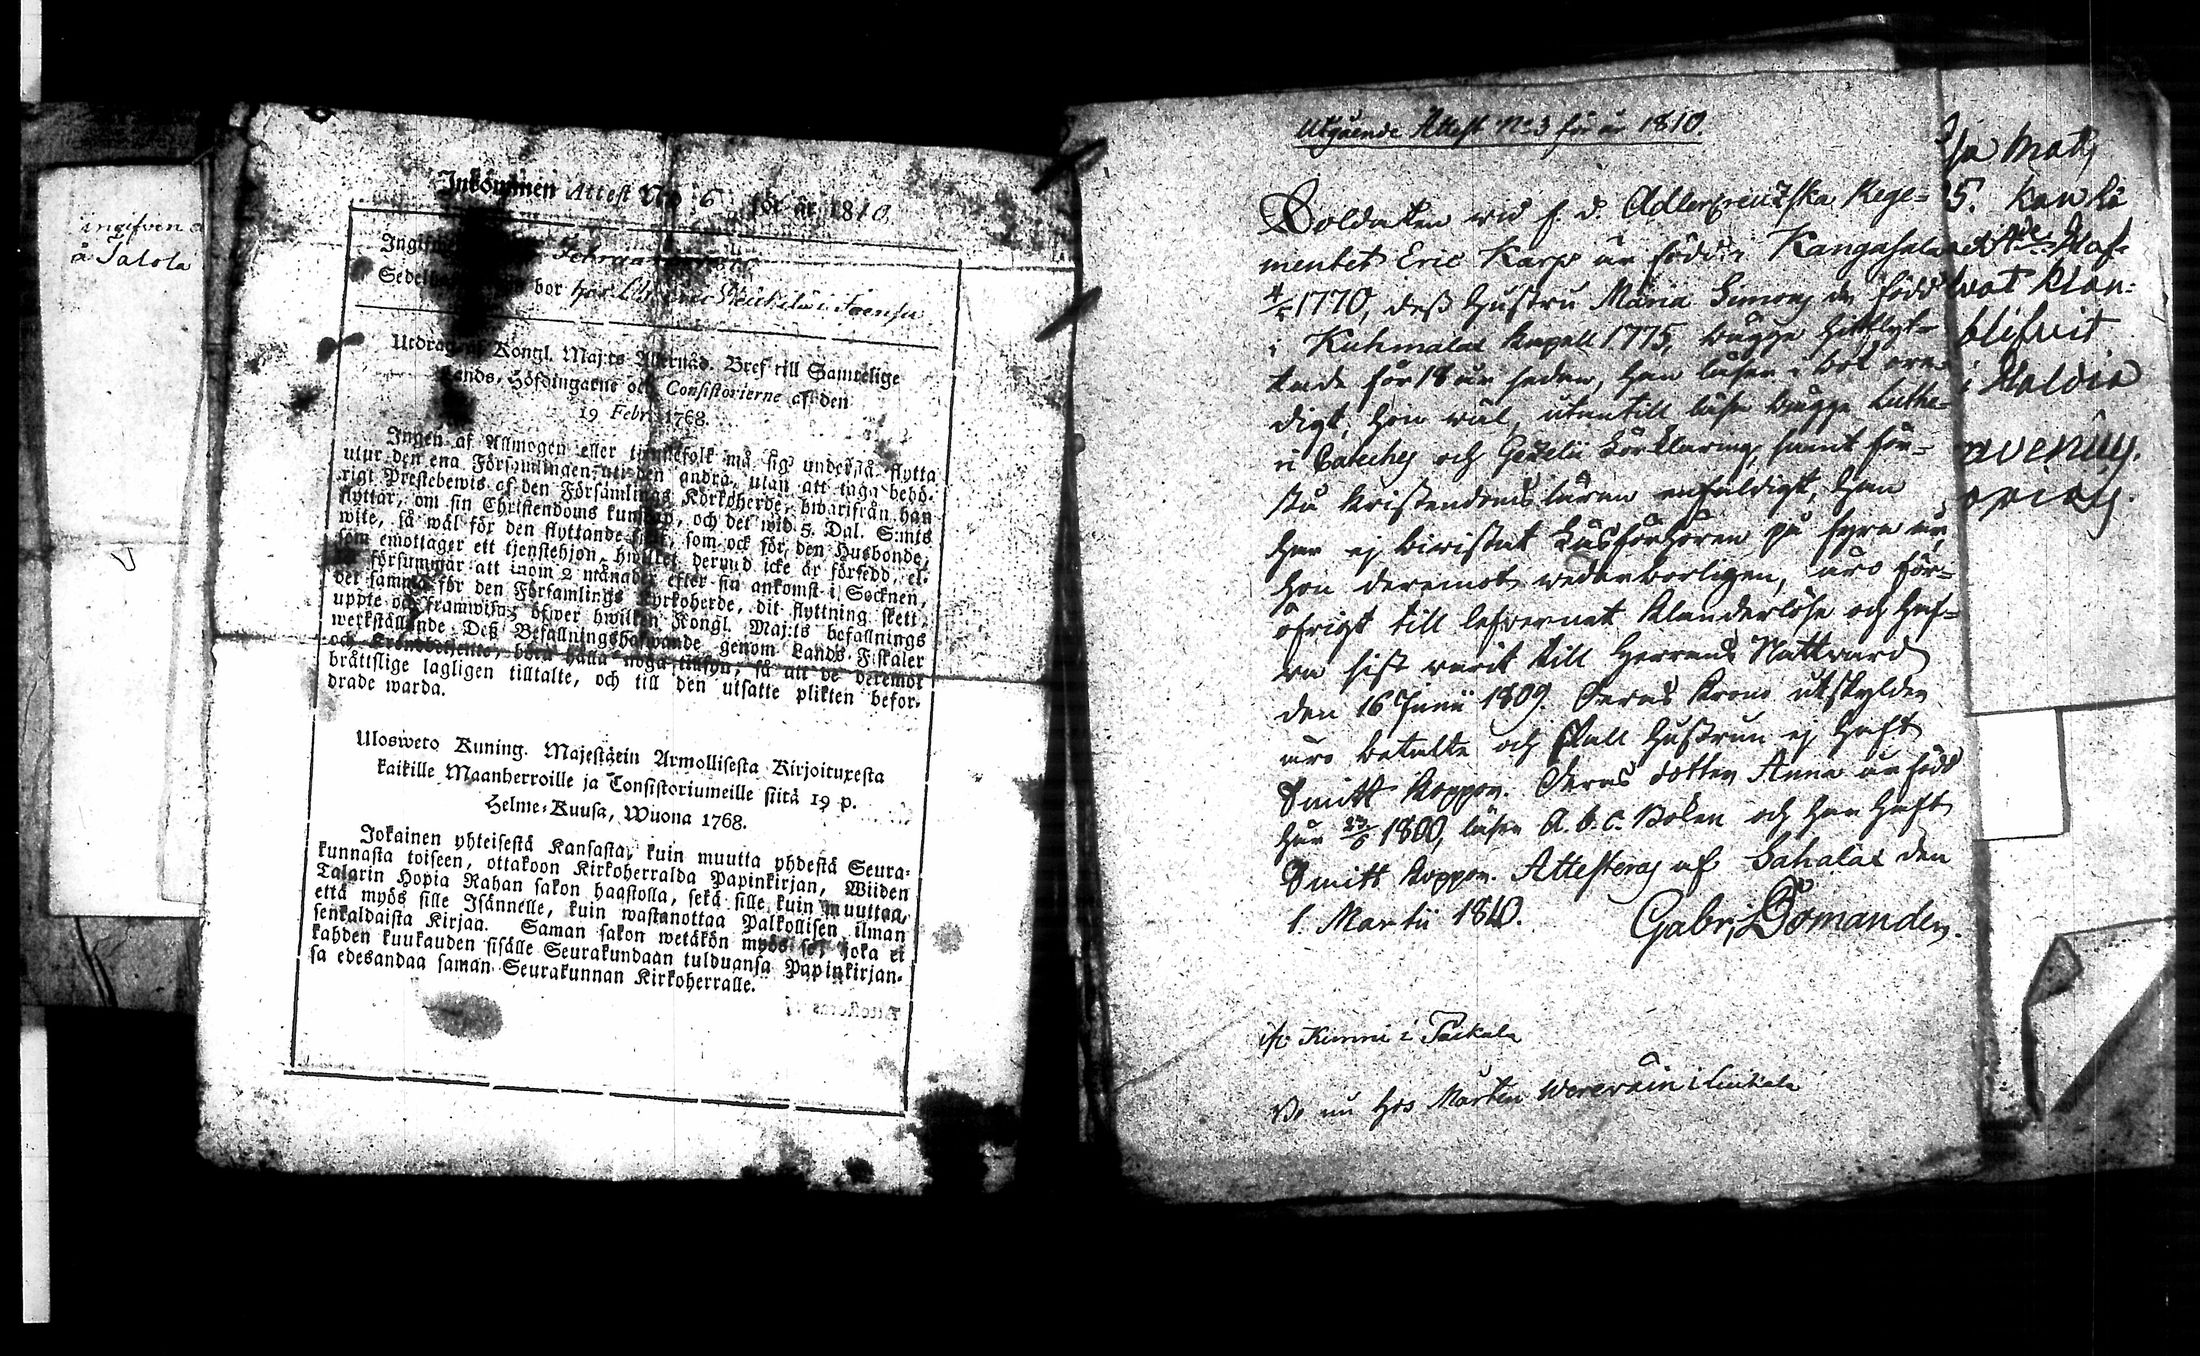 ingifven
å Talola
Inkommen Attest No 6 för år 1810.
Ingifwen
Sedel bor hos i
Utdrag af Kongl. Maj:ts Allernåd. Bref till Samtelige
Lands-Höfdingarne och Consistorierne af den
19 Febr. 1768.
Ingen af Allmogen eller tjenstefolk må sig understå flytta
utur den ena Församlingen uti den andra, utan att taga behö-
rigt Prestebewis af den Församlings Kyrkoherde, hwarifrån han
flyttar, om sin Christendoms kunskap, och det wid 5 Dal. S:mts
wite, så wäl för den flyttande sielf, som ock för den Husbonde,
som emottager ett tjenstehjon, hwilket dermed icke är försedd, el-
försummar att inom 2 månader efter sin ankomst i Socknen,
det samma för den Församlings Kyrkoherde, dit flyttning skett,
uppte och framwisa; öfwer hwilken Kongl. Maj:ts befallnings
werkställande Deß Befallningshafwande genom Lands-Fiskaler
och Kronobetjente, böra hålla noga tillsyn, så att de deremot
bråttslige lagligen tilltalte, och till den utsatte plikten befor-
drade warda.
Ulosweto Kuning. Majestätin Armollisesta Kirjoituxesta
kaikille Maanherroille ja Consistoriumeille siitä 19 p.
Helme-Kuusa, Wuona 1768.
Jokainen yhteisestä Kansasta, kuin muutta yhdestä Seura-
kunnasta toiseen, ottakoon Kirkoherralda Papinkirjan, Wiiden
Talarin Hopia Rahan sakon haastolla, sekä sille kuin muuttaa,
että myös sille Isännelle, kuin wastanottaa Palkollisen ilman
senkaldaista Kirjaa. Saman sakon wetäkön myös se, joka ei
kahden kuukauden sisälle Seurakundaan tulduansa Papinkirjan-
sa edesandaa saman Seurakunnan Kirkoherralle.
Utgående Attest No 3 för år 1810.
Soldaten wid f. d. Adlercreutzska Rege-
mentet Eric Karp är född i Kangasala
1770, deß Hustru Maria Simons dr född
i Kuhmalax Kapell 1775, bägge hitflyt-
tade för 18 år sedan, han läser i bok ore-
digt, hon wäl, utantill läse bägge Luthe-
ri Cateches och Gezelii Förklaring, samt för-
stå kristendoms läran enfaldigt, han
har ej biwistat Läsförhören på fyra år,
hon deremot wederborligen, äro för-
öfrigt till lefwernet klanderlöse och haf-
wa sist warit till Herrans Nattward
den 16 Junii 1809. Deras Krono utskylder
äro betalte och skall Hustrun ej haft
Smitt koppor. Deras dotter Anna är född
här 1800, läser A.b.c. Boken och har haft
Smitt koppor. Attesteras af Sahalax den
1. Martii 1810. Gabr. Bomander.
Kimmi i Paikala
Bo nu hos Mårten Werewäin i
Mats
5. Kan lä
wat klan-
blifwit
i Haldia